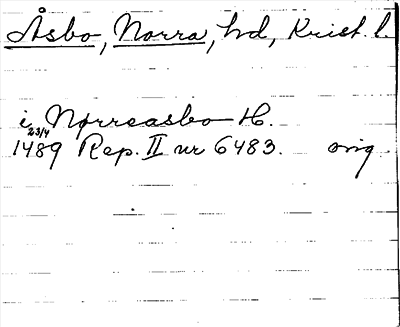 Åsbo, Norra, hd, Krist. l.
i Nørreasbo H.
23/4
1489 Rep. II nr 6483. orig